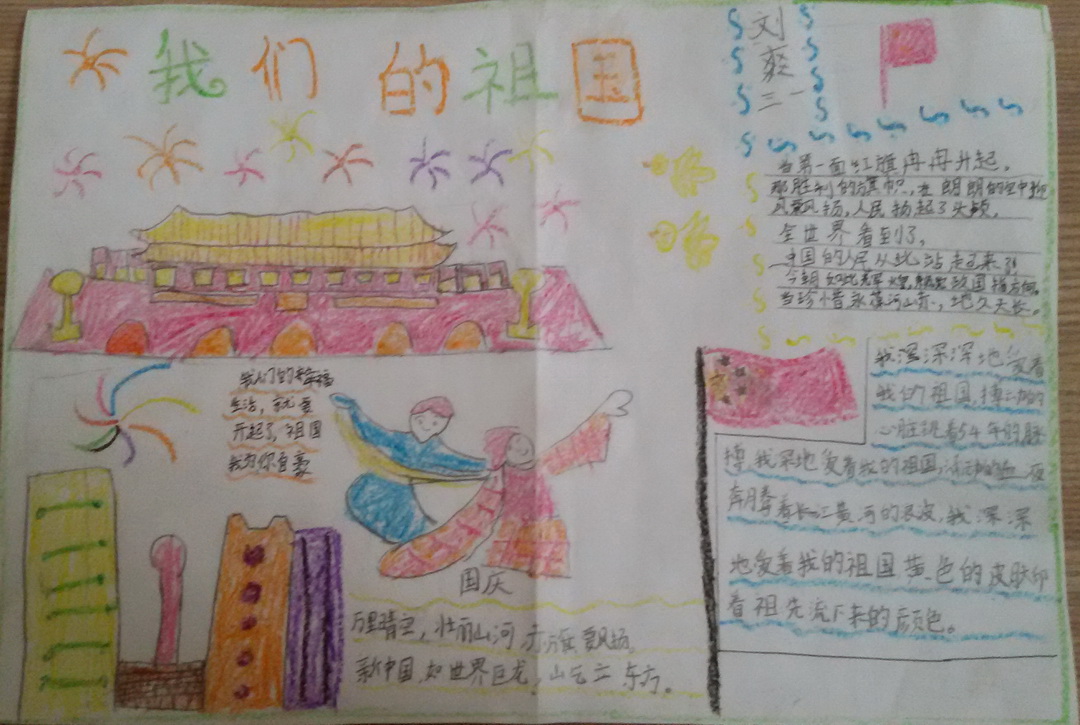 我们的祖国
刘
爽
三一
当第一面红旗冉冉升起，
那胜利的旗帜，在朗朗的空中迎
风飘扬，人民扬起了头颅，
全世界看到了，
中国的人民从此站起来了！
今朝如此辉煌，
当珍惜永葆河山，地久天长。
我深深地爱着
我的祖国，搏动的
心脏跳着54年的脉
搏，我深地爱着我的祖国，流动的血液
奔腾着长江黄河的
我深深
地爱着我的祖国黄色的皮肤印
着祖先流下来的颜色。
我们的幸福
生活，就要
开起了，祖国
我为你自豪
国庆
万里晴空，壮丽山河 飘扬，
新中国，如世界巨龙，屹立东方。